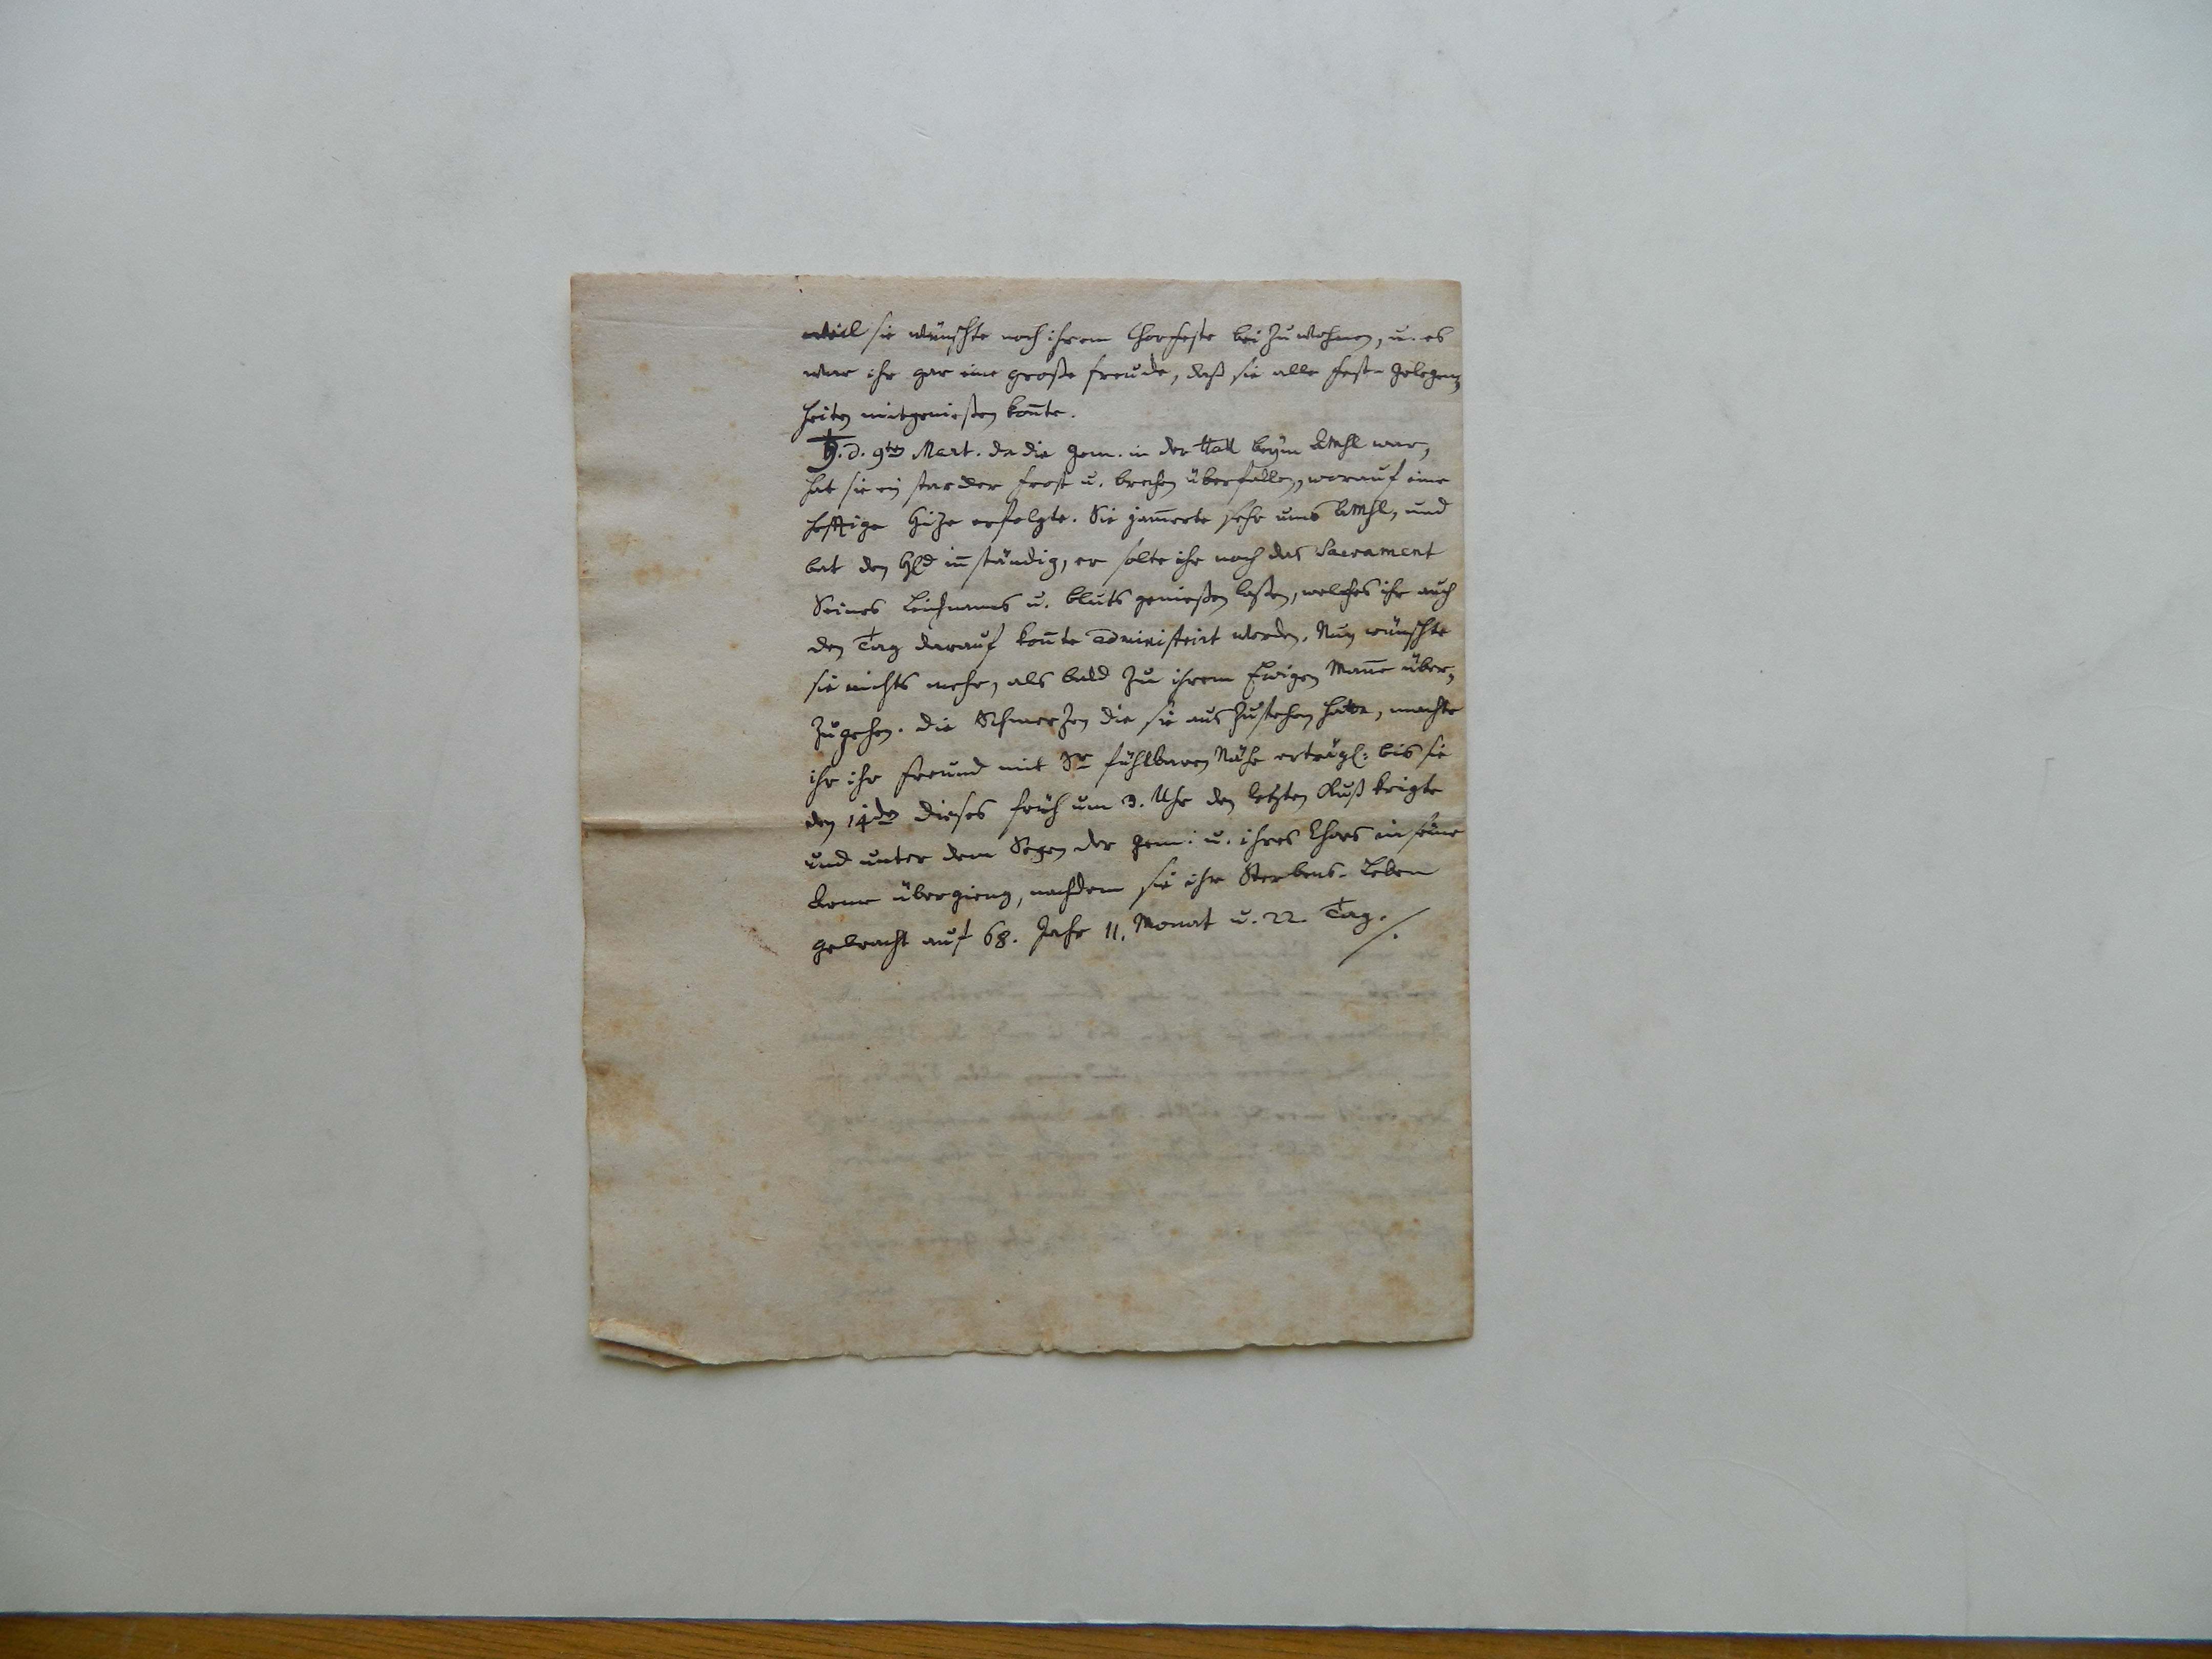 weil sie wünschte noch ihrem Chorfeste bei zu wohnen, u. es
war ihr gar eine große freude, daß sie alle fest-gelegen„
heiten mitgenießen kon̄te.
♄. d. 9ten Mart. da die gem. in der Stadt beÿm AMhl war,
hat sie ein starcker frost u. brechen überfallen, worauf eine
hefftige Hitze erfolgte. Sie jam̄erte sehr ums AMhl, und
bat den Hld in̄ständig, er solte ihr noch das Sacrament
Seines Leichnams u. bluts genießen laßen, welches ihr auch
den Tag darauf kon̄te administrirt werden. Nun wünschte
sie nichts mehr, als bald zu ihrem Ewigen Man̄e über„
zugehen. die Schmerzen die sie auszustehen hatte, machte
ihr ihr freund mit Sr fühlbaren Nähe erträgl: bis sie
den 14ten dieses früh um 3. Uhr den letzten Kuß krigte
und unter dem Segen der gem: u. ihres Chors in seine
Arme übergieng, nachdem sie ihr Sterbens-Leben
gebracht auf 68. Jahr 11. Monat u. 22 Tag./.